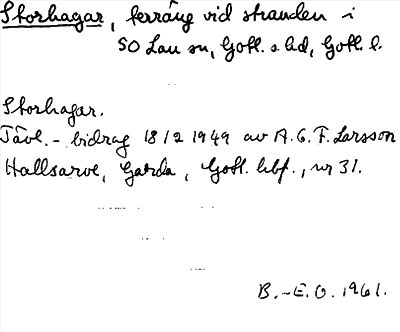 Storhagar, terräng vid stranden i
SO Lau sn, Gotl. s. hd, Gotl. l.
Storhagar.
Tävl.- bidrag 18/2 1949 av A. G. F. Larsson
Hallsarve, Garda, Gotl. hbf., nr 31.
B.-E. O. 1961.